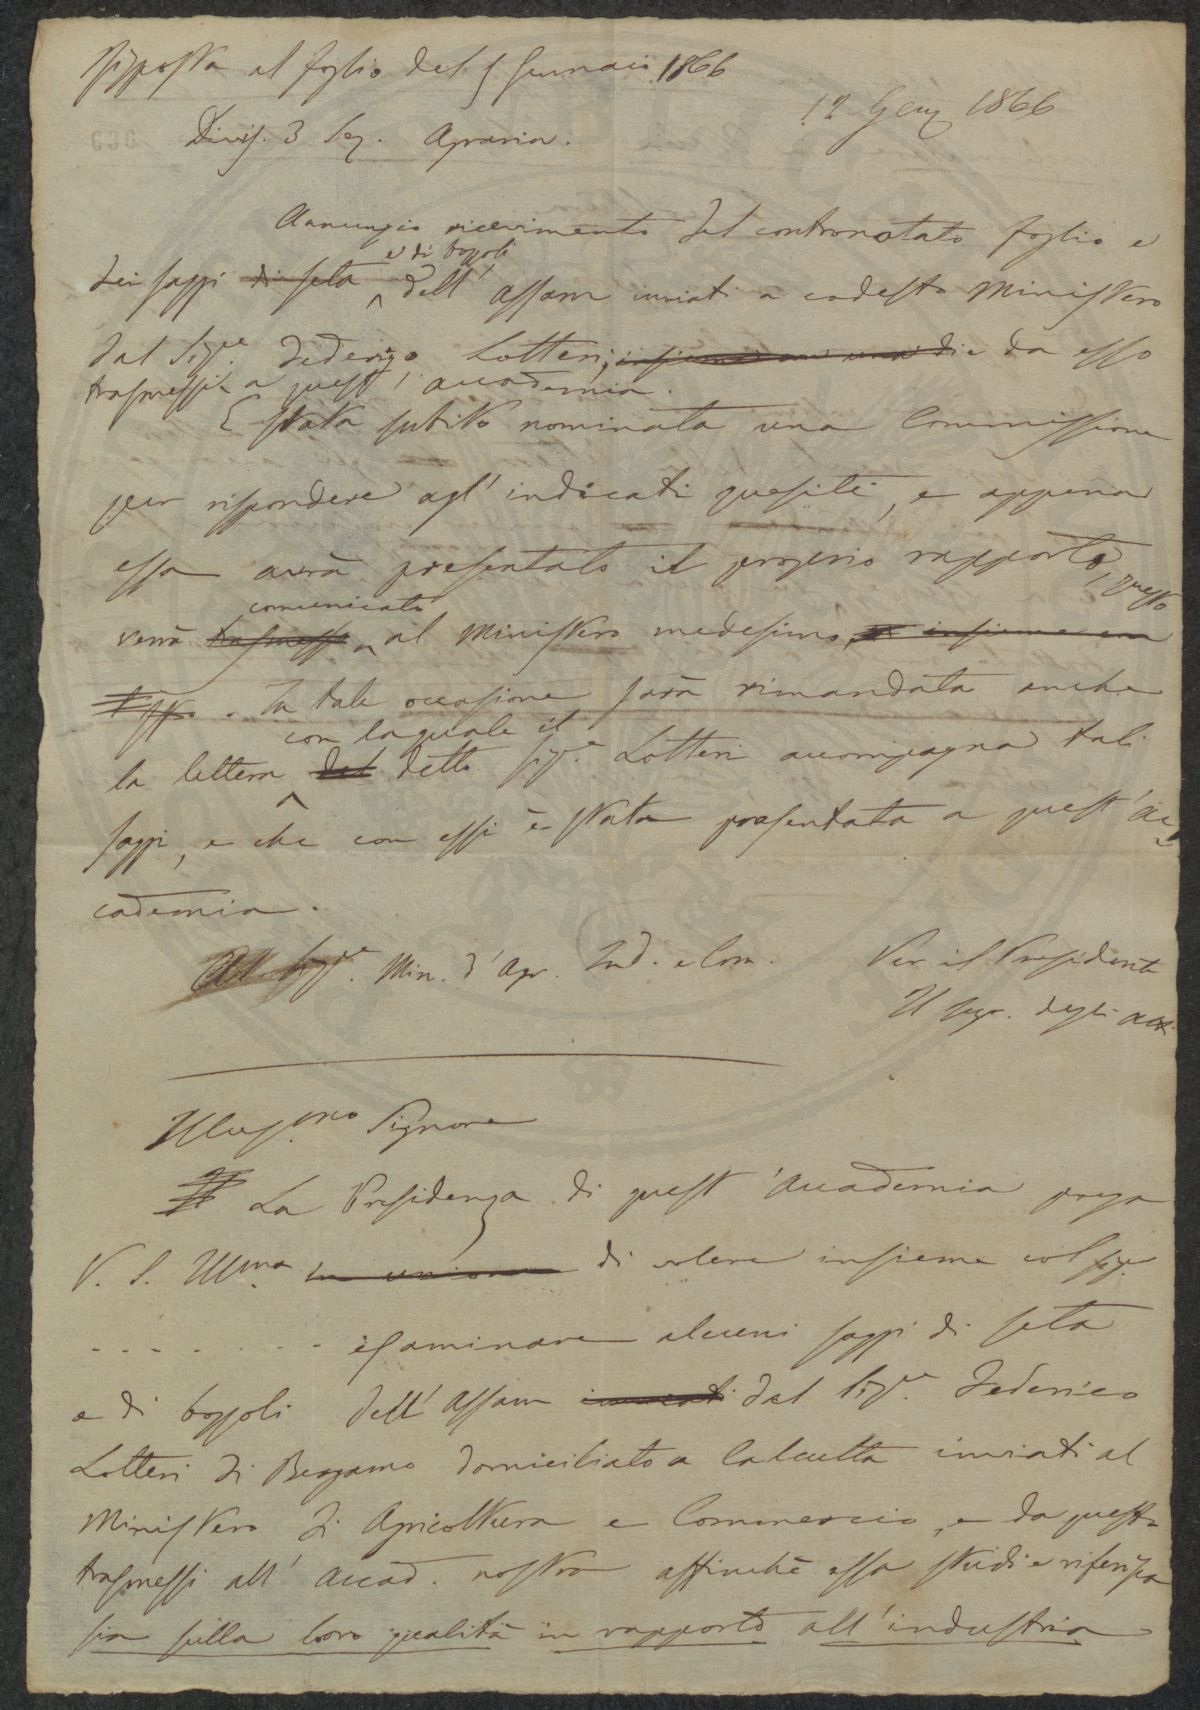 Risposta al foglio del 5 Gennaio 1866
12 Genn 1866
Divis. 3 Sez. Agraria.
Annunzio ricevimento del contronotato foglio e
dei saggi di seta e di bozzoli dell' Assam inviati a codesto Ministero
dal Sigre. Federigo Lotteri, da esso
trasmessi a quest' accademia.
È stata subito nominata una Commissione
per rispondere agl' indicati quesiti, e appena
essa avrà presentato il proprio rapporto, questo
verrà trasmesso comunicato al Ministero medesimo, insieme con
In tale occasione sarà rimandata anche
la lettera del con la quale il detto Sigre. Lotteri accompagna tali
saggi, e che con essi è stata presentata a quest' Ac
cademia.
All Sigre. Min. d' Agr. Ind. e Com.
Per il Presidente
Il Segr. degli Atti
Illus.mo Signore
La Presidenza di quest' Accademia prega
V. S. Illma. in unione di volere insieme col Sigre
. . . . . . . . esaminare alcuni saggi di seta
e di bozzoli dell' Assam inviati dal Sigre. Federico
Lotteri di Bergamo domiciliato a Calcutta inviati al
Ministero di Agricoltura e Commercio, e da questo
trasmessi all' Accad. nostra affinché essa studi e riferisca
sia sulla loro qualità in rapporto all' industria